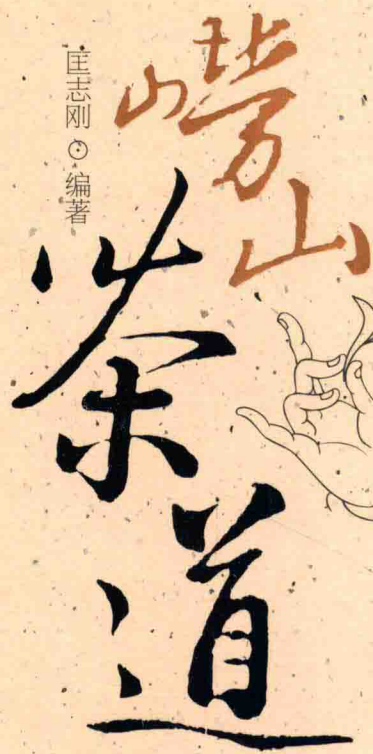 崂山
茶道
匡志刚⊙编著